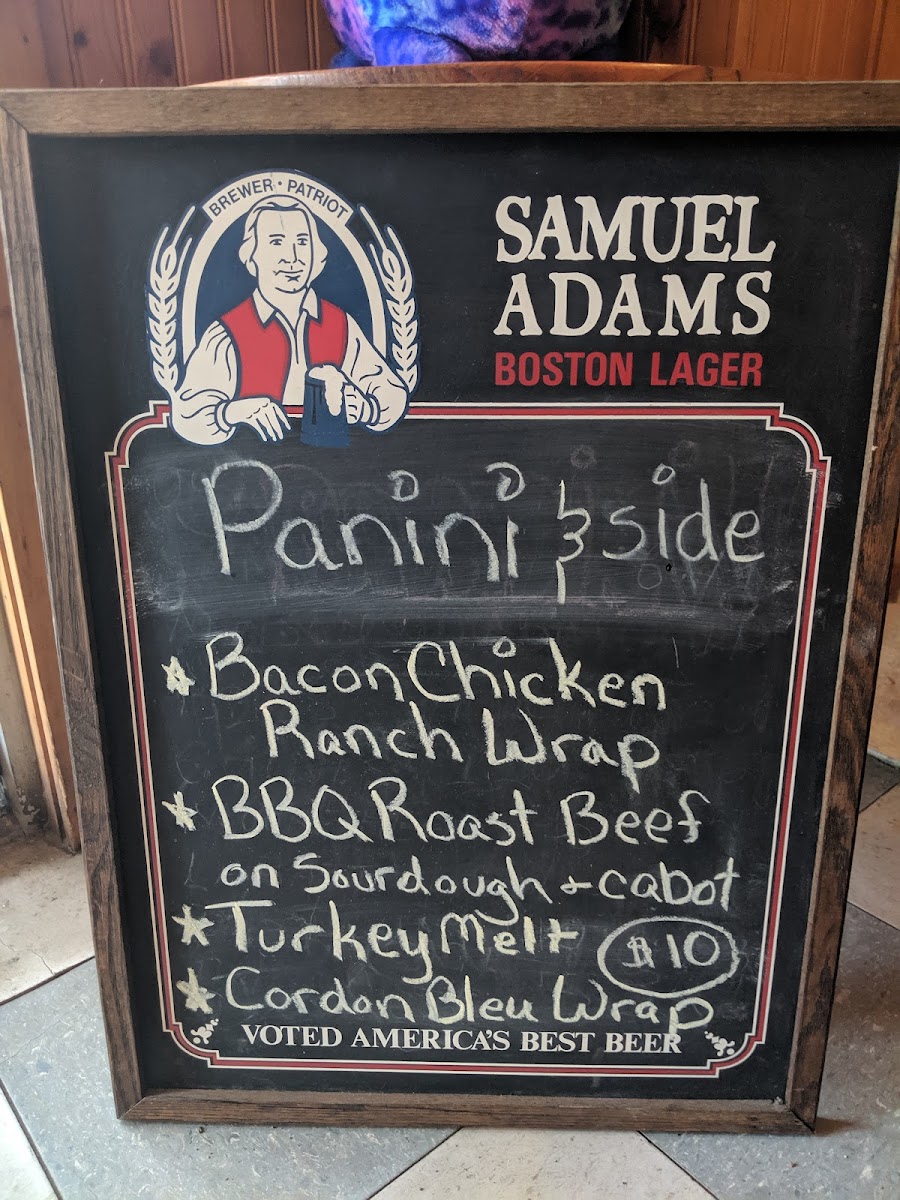 BREWER · PATRIOT
SAMUEL
ADAMS
BOSTON LAGER
Panini & side
Bacon Chicken
Ranch Wrap
BBQ Roast Beef
on Sourdough + cabot
Turkey Melt $10
Cordon Bleu Wrap
VOTED AMERICA'S BEST BEER